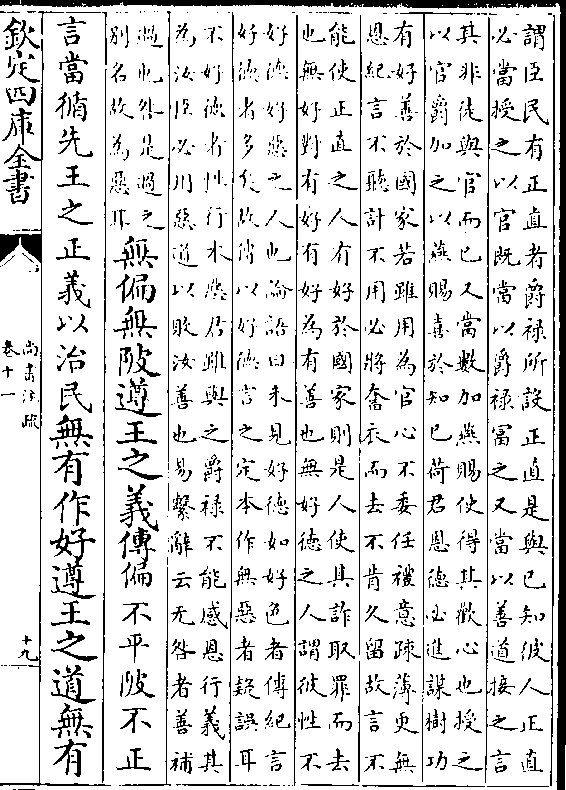 謂臣民有正直者爵祿所設正直是與已知彼人正直
必當授之以官既當以爵祿富之又當以善道接之言
其非徒與官而已又當數加燕賜使得其歡心也授之
以官爵加之以燕賜喜於知已荷君恩德必進謀樹功
有好善於國家若雖用為官心不委任禮意疎薄更無
恩紀言不聽計不用必將奮衣而去不肯久留故言不
能使正直之人有好於國家則是人使其詐取罪而去
也無好對有好有好為有善也無好德之人謂彼性不
好德好惡之人也論語曰未見好德如好色者傳紀言
好德者多矣故傳以好德言之定本作無惡者疑誤耳
不好德者性行本惡君雖與之爵祿不能感恩行義其
為汝臣必用惡道以敗汝善也易繫辭云无咎者善補
過也咎是過之
別名故為惡耳
無偏無陂遵王之義傳偏不平陂不正
言當循先王之正義以治民無有作好遵王之道無有
欽定四庫全書
尚書注疏
卷十一
十九